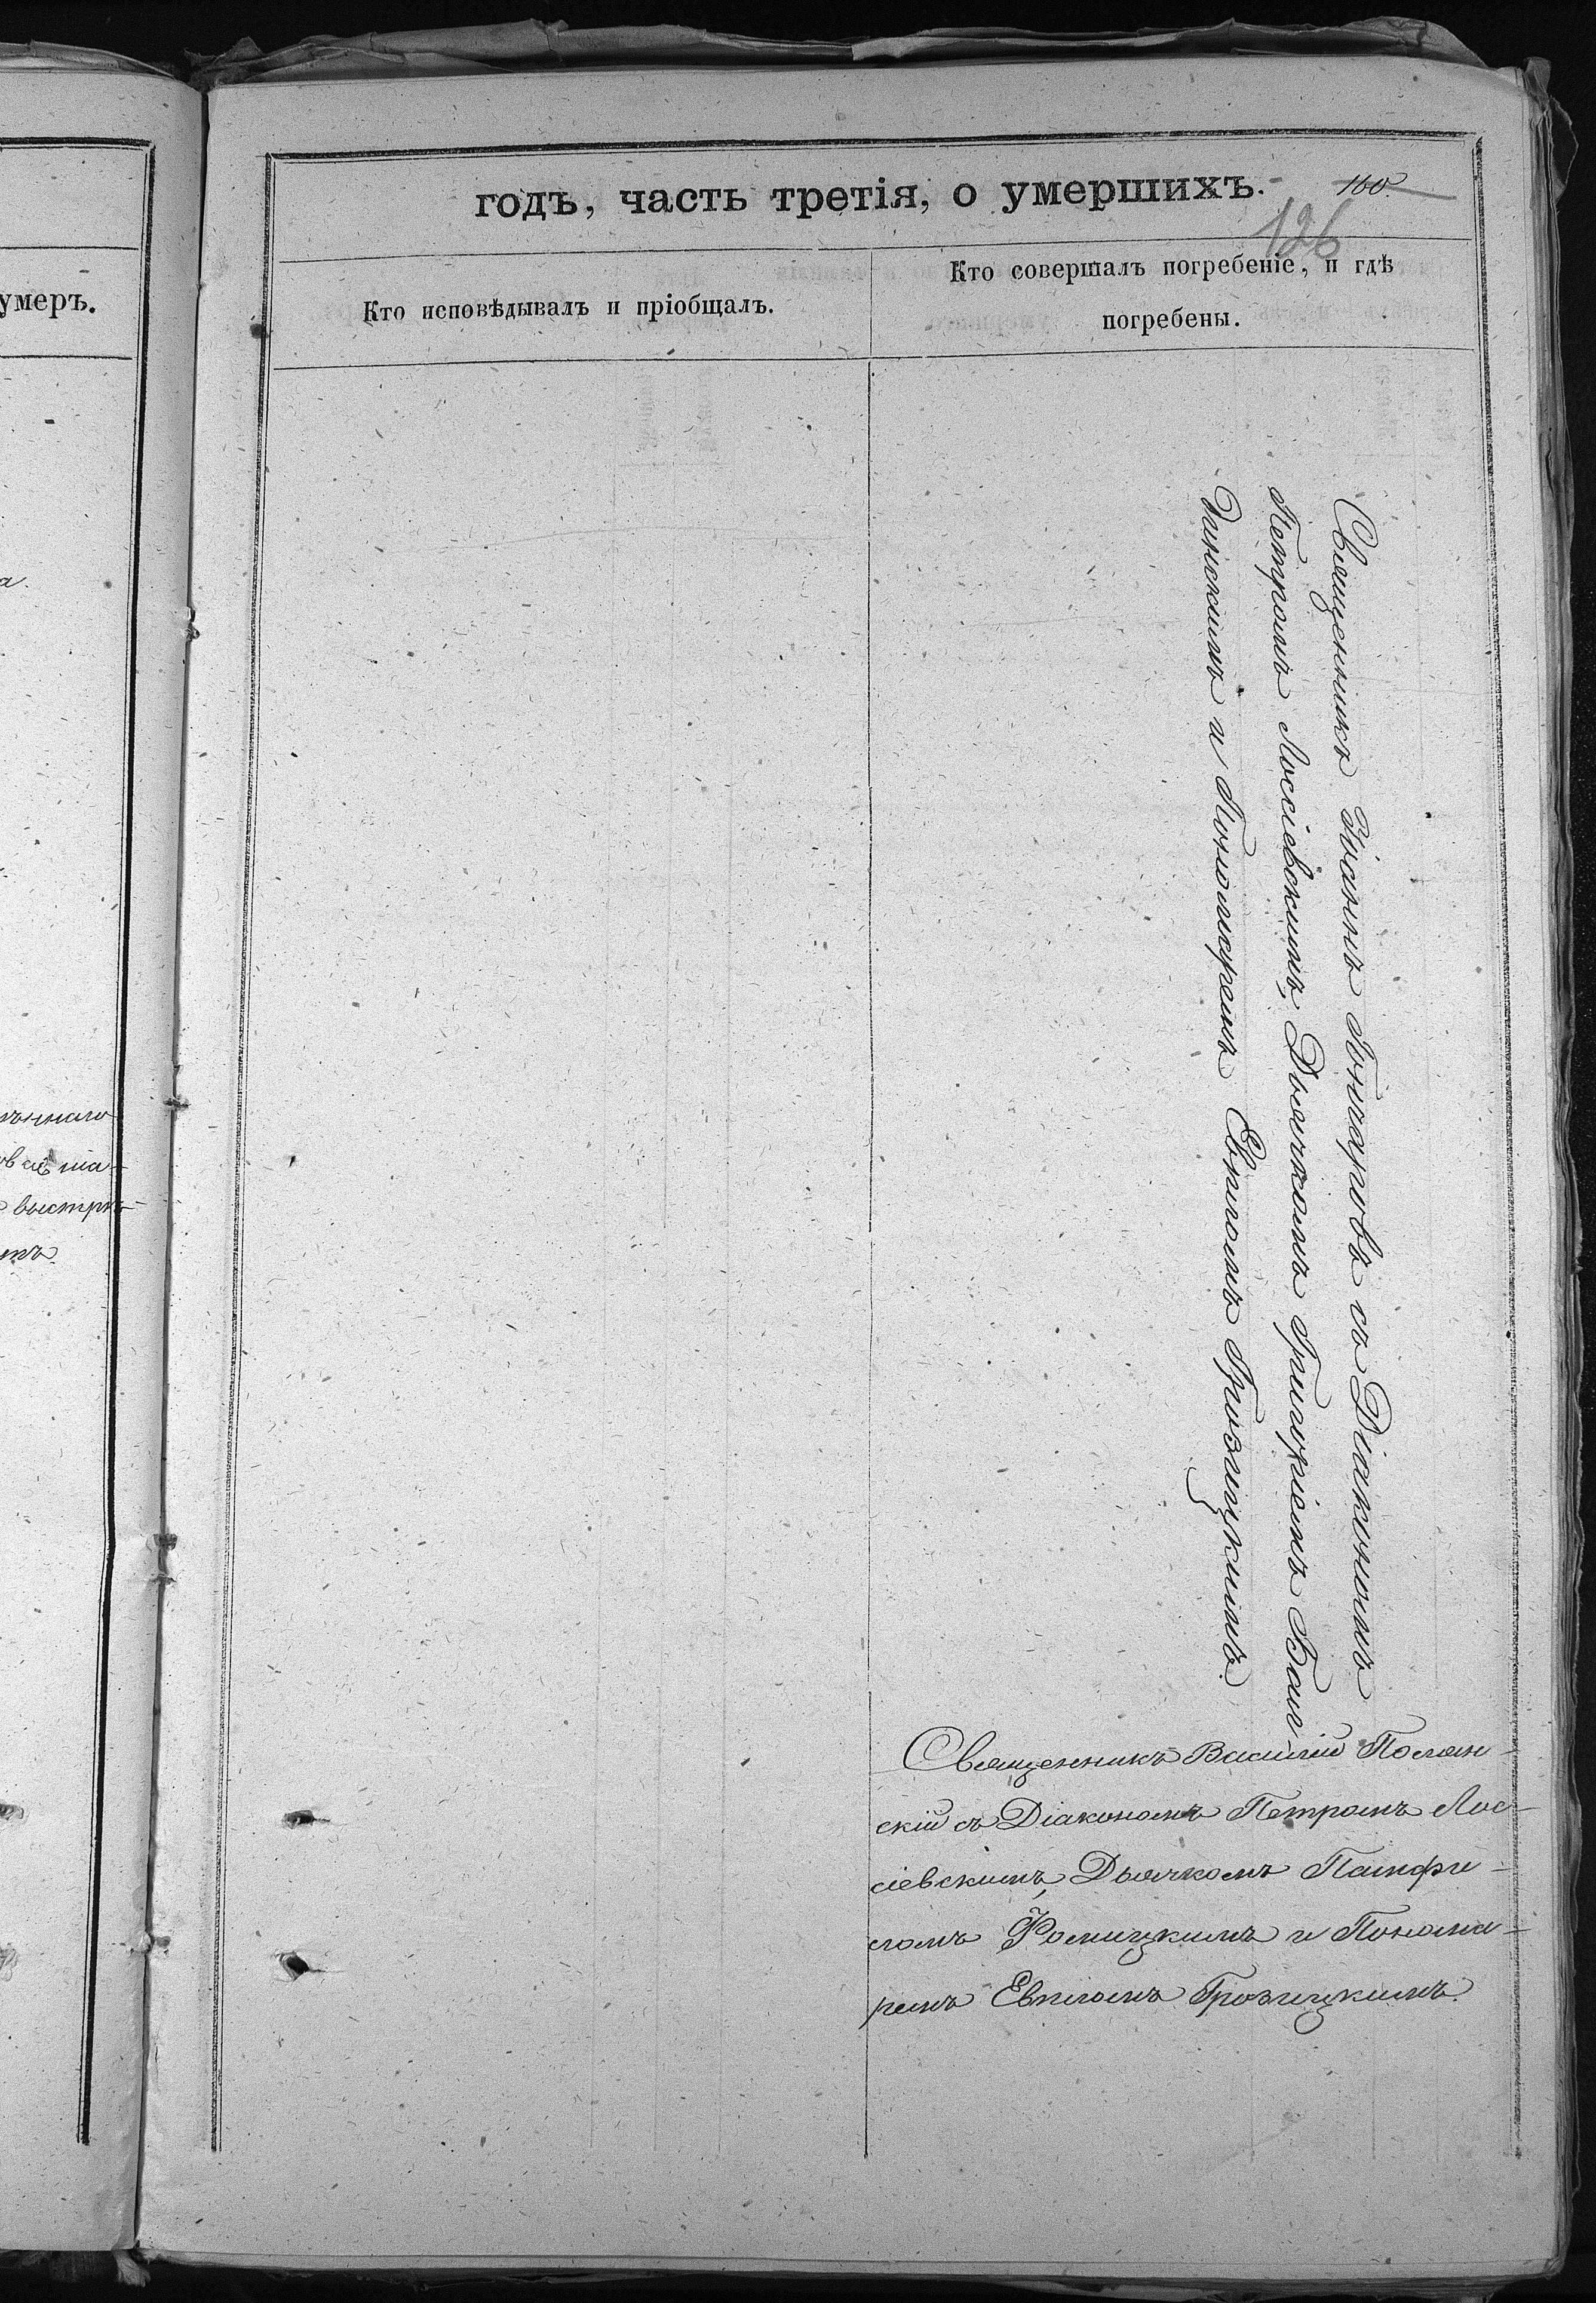 умеръ.
а.
выстрѣ-
годъ, часть третія, о умершихъ.
160
126
Кто исповѣдывалъ и пріобщалъ.
Кто совершалъ погребеніе, и гдѣ
погребены.
Священникъ Іоаннъ съ Діакономъ
Петромъ Лоссіевскимъ, Дьячкомъ Григоріемъ
и Пономаремъ Евпломъ Грозицкимъ.
Священникъ Василій Полян-
скій съ Діакономъ Петромъ Лос-
сіевскимъ, Дьячкомъ Памфи-
ломъ Фомицкимъ и Понома-
ремъ Евпломъ Грозицкимъ.